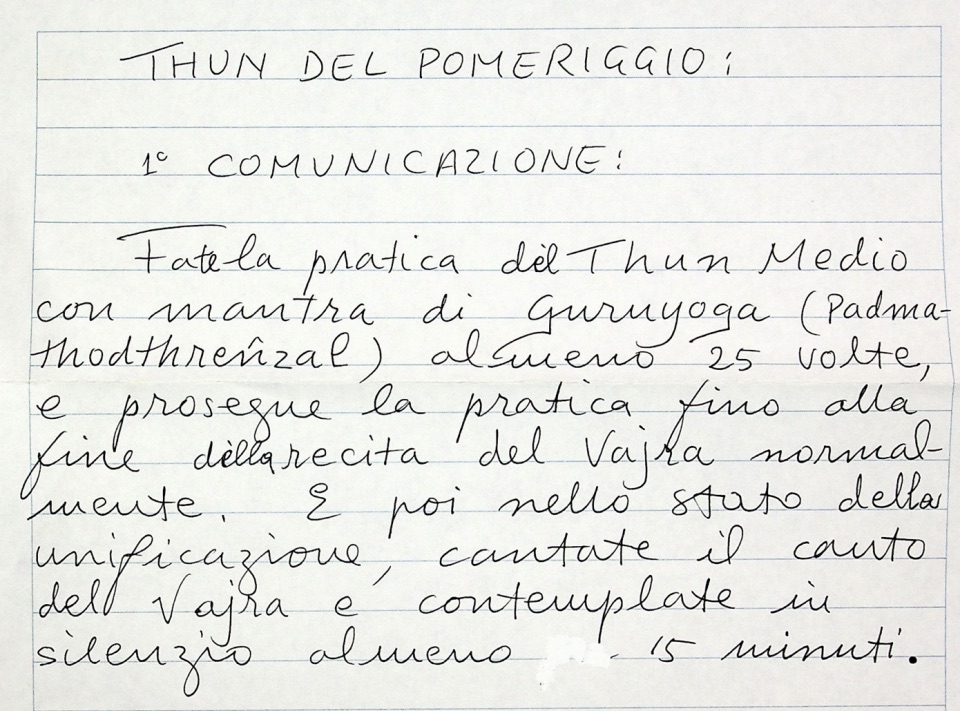 THUN DEL POMERIGGIO:
1° COMUNICAZIONE:
Fate la pratica del Thun Medio
con mantra di Guruyoga (Padma-
thodthreñzal) almeno 25 volte,
e prosegue la pratica fino alla
fine della recita del Vajra normal-
mente. E poi nello stato della
unificazione, cantate il canto
del Vajra e contemplate in
silenzio almeno 15 minuti.